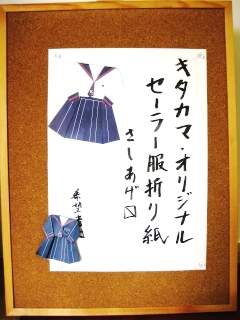 キタカマ・オリジナル
セーラー服折り紙
さしあげ〼
希望者